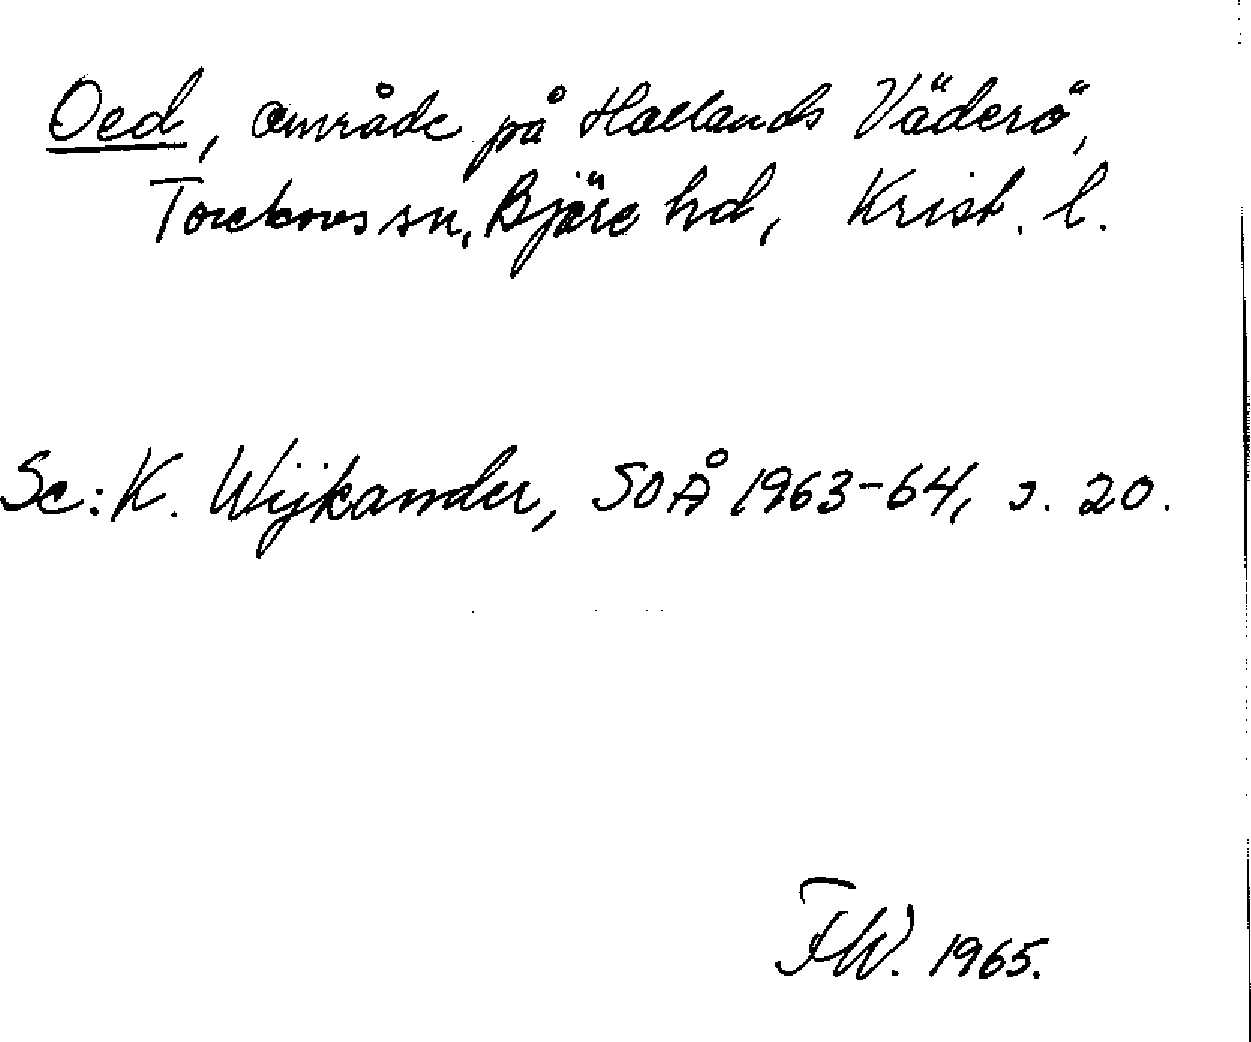 Oed, område på Hallands Väderö,
Torekovs sn, Bjäre hd, Krist. l.
Sc: K. Wijkander, SOÅ 1963-64, s. 20.
F.W. 1965.